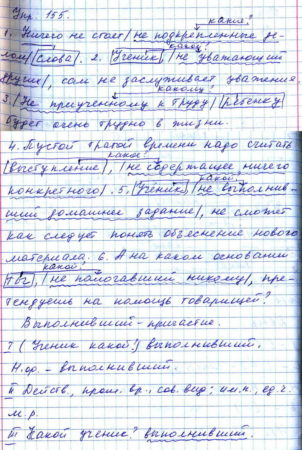 Упр. 155.
какие?
1. Ничего не стоят не подкрепленные де-
лом слова. 2. Ученик, не уважающий
какой?
других, сам не заслуживает уважения.
какому?
3. Не приученному к труду ребенку
будет очень трудно в жизни.
4. Пустой тратой времени надо считать
какое?
выступление, не содержащее ничего
какой?
конкретного. 5. Ученик, не выполнив-
ший домашнее задание, не сможет
как следует понять объеснение нового
материала. 6. А на каком основании
какой?
ты, не помогавший никому, пре-
тендуешь на помощь товарищей?
Выполнивший - причастие.
I (Ученик какой?) выполнивший.
Н.ф. - выполнивший.
II Действ., прош. вр., сов. вид; им.п., ед.ч.
м.р.
III Какой ученик? выполнивший.